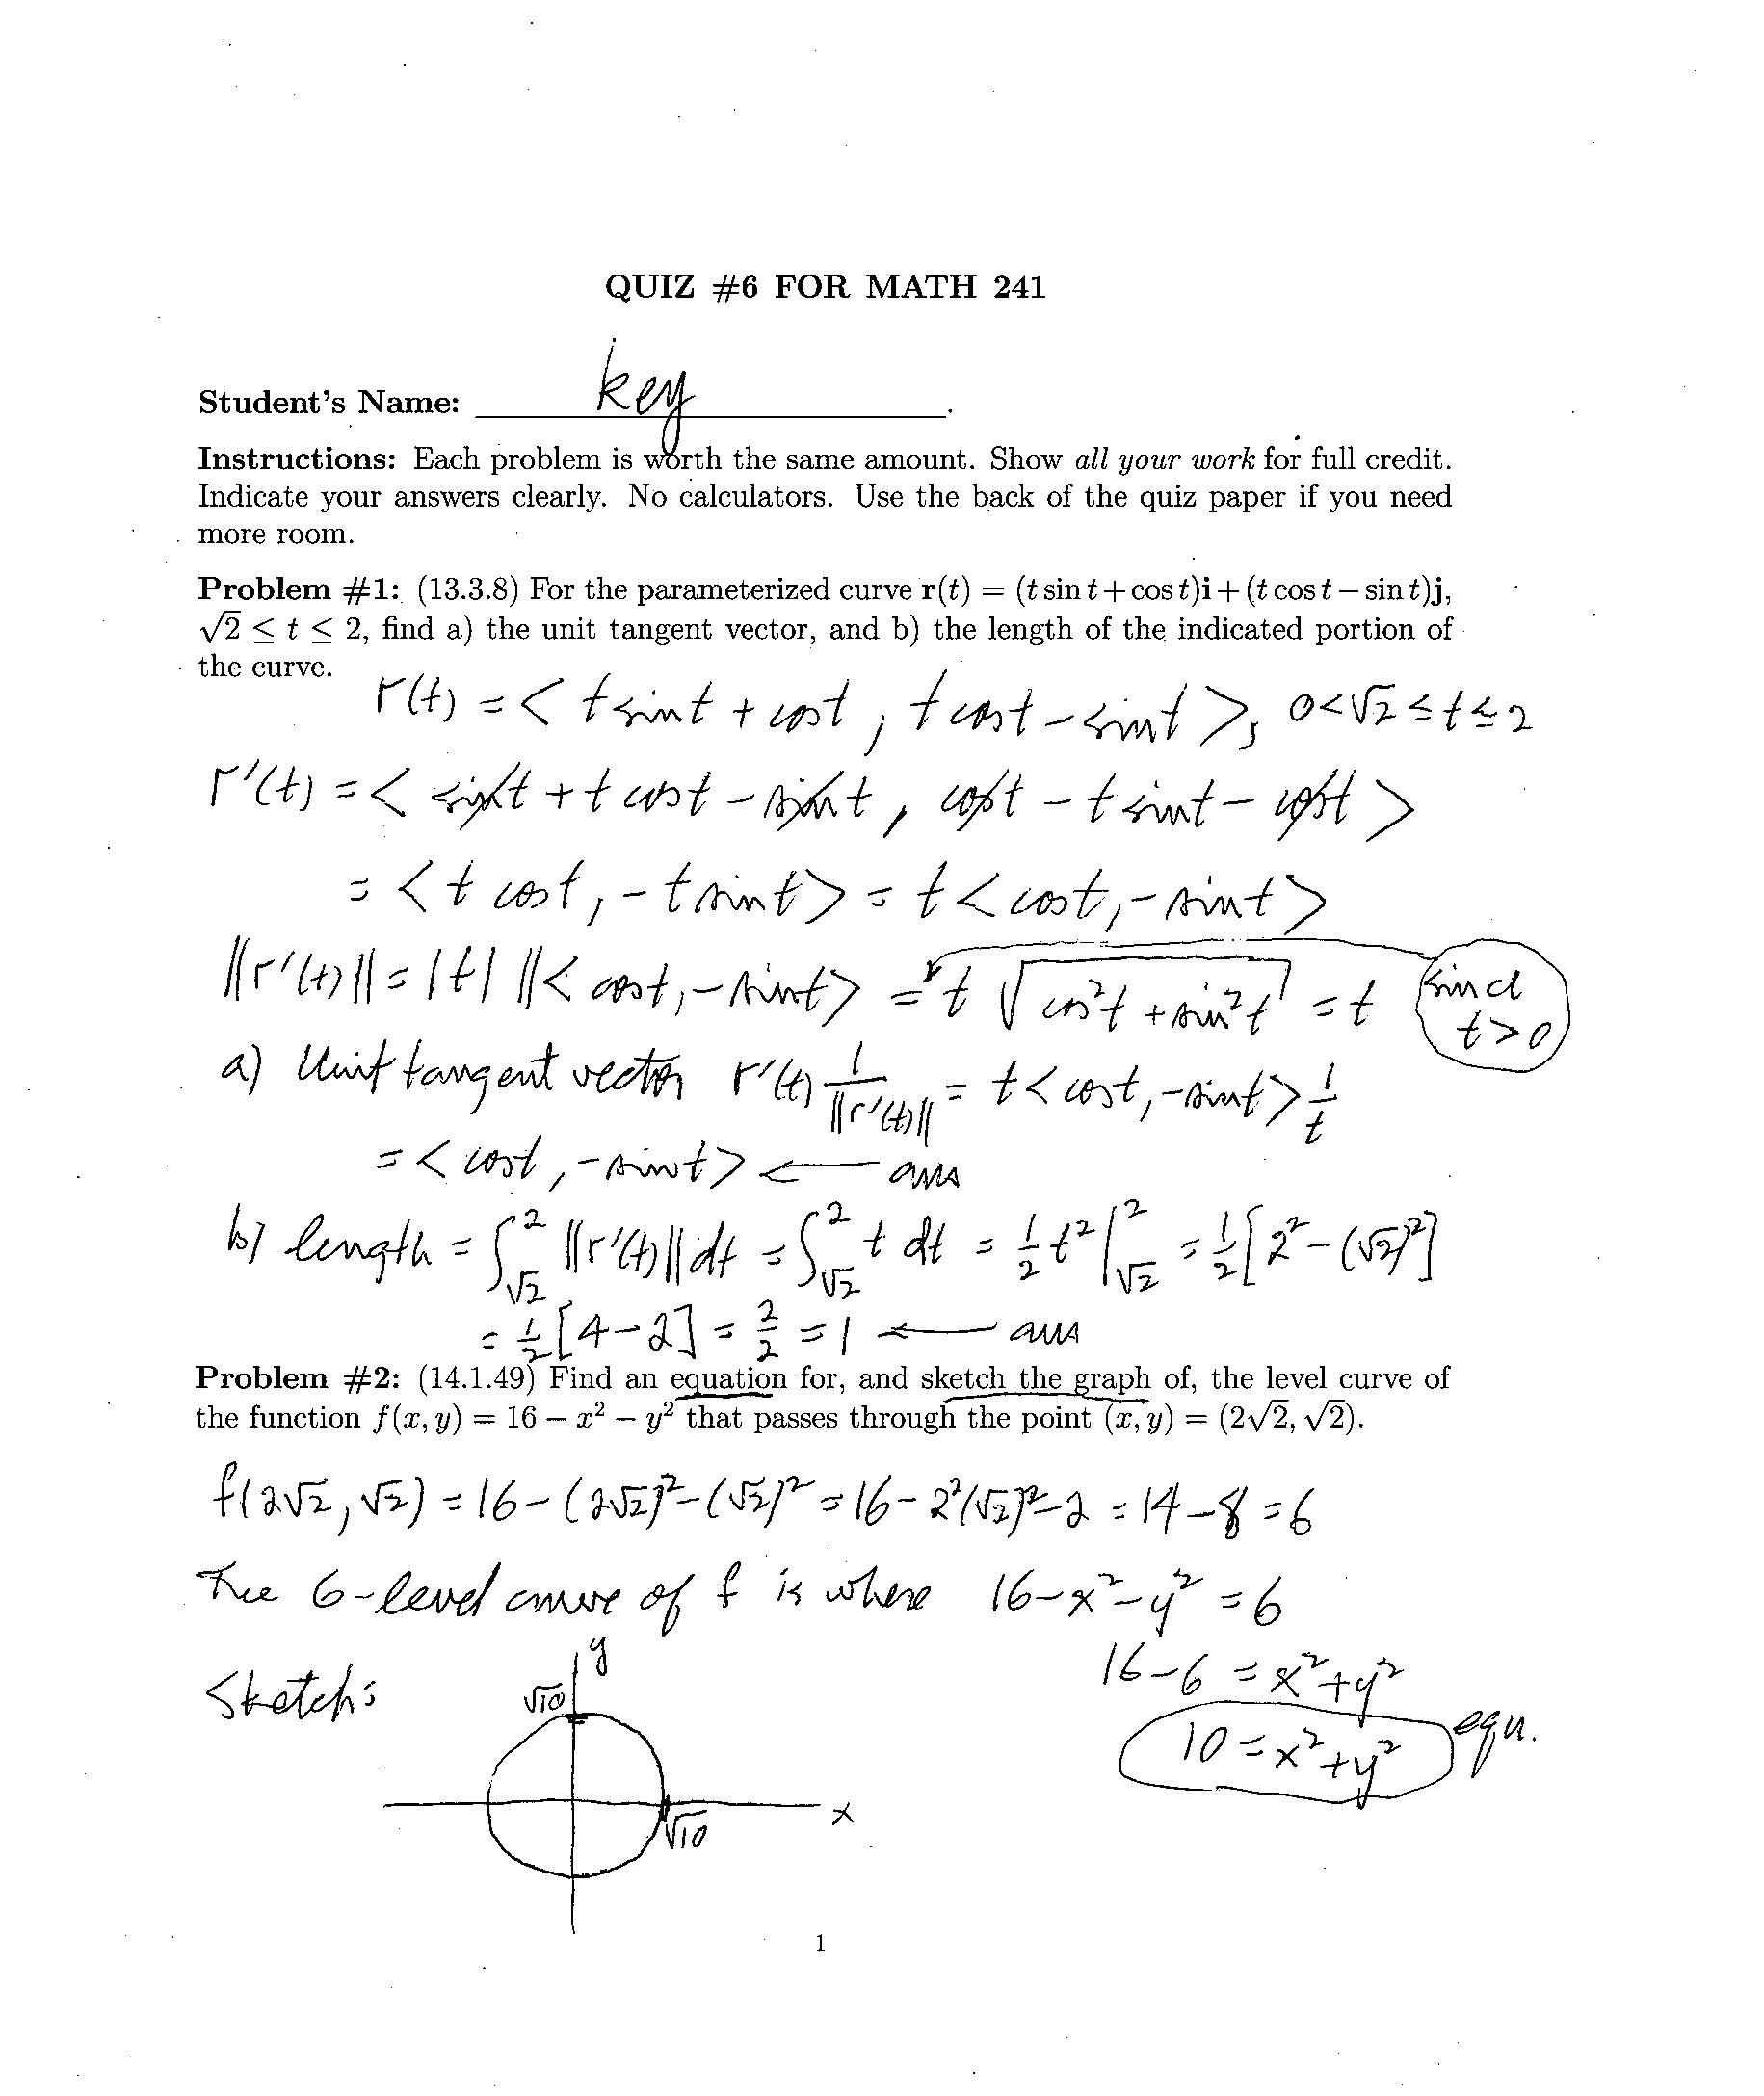 QUIZ #6 FOR MATH 241
Student's Name: key.
Instructions: Each problem is worth the same amount. Show all your work for full credit.
Indicate your answers clearly. No calculators. Use the back of the quiz paper if you need
more room.
Problem #1: (13.3.8) For the parameterized curve r(t) = (t sin t + cos t)i + (t cos t − sin t)j,
√2 ≤ t ≤ 2, find a) the unit tangent vector, and b) the length of the indicated portion of
the curve.
r(t) = < t sin t + cos t, t cos t − sin t >, 0<√2 ≤ t ≤ 2
r'(t) = < sin t + t cos t − sin t, cos t − t sin t − cos t >
= < t cos t, −t sin t > = t < cos t, −sin t >
||r'(t)|| = |t| ||< cos t, −sin t > = t √cos²t + sin²t = t since
t>0
a) Unit tangent vector r'(t) 1/||r'(t)|| = t < cos t, −sin t > 1/t
= < cos t, −sin t > ← ans
b) length = ∫_√2^2 ||r'(t)|| dt = ∫_√2^2 t dt = 1/2 t² |_√2^2 = 1/2 [2² − (√2)²]
= 1/2 [4−2] = 2/2 = 1 ← ans
Problem #2: (14.1.49) Find an equation for, and sketch the graph of, the level curve of
the function f(x, y) = 16 − x² − y² that passes through the point (x, y) = (2√2, √2).
f(2√2, √2) = 16 − (2√2)² − (√2)² = 16 − 2²(√2)² − 2 = 14 − 8 = 6
The 6-level curve of f is where 16 − x² − y² = 6
16 − 6 = x² + y²
10 = x² + y² equ.
Sketch:
y
√10
x
√10
1